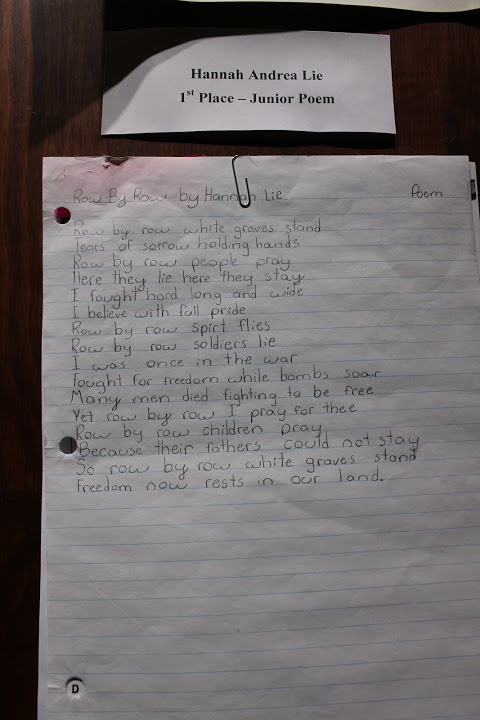 Hannah Andrea Lie
1st Place – Junior Poem
Row By Row by Hannah Lie Poem
Row by row white graves stand
Tears of sorrow holding hands
Row by row people pray
Here they lie here they stay
I fought hard long and wide
I believe with full pride
Row by row spirt flies
Row by row soldiers lie
I was once in the war
Fought for freedom while bombs soar
Many men died fighting to be free
Yet row by row I pray for thee
Row by row children pray
Because their fathers could not stay
So row by row white graves stand
Freedom now rests in our land.
D